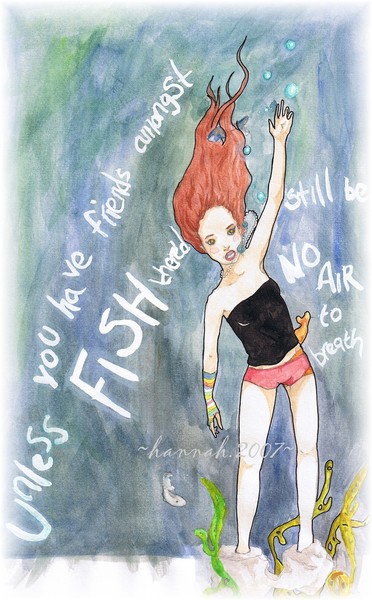 Unless you have friends amongst
FISH there'd
still be
NO AIR
to
breath
~hannah.2007~